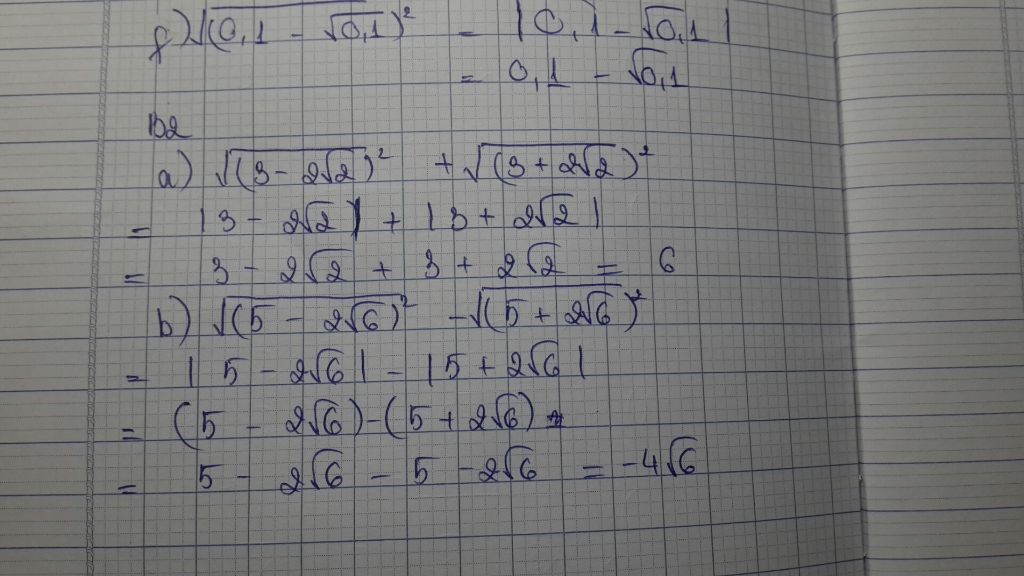 f) √(0,1 - √0,1)² = |0,1 - √0,1|
= 0,1 - √0,1
B2
a) √(3 - 2√2)² + √(3 + 2√2)²
= |3 - 2√2| + |3 + 2√2|
= 3 - 2√2 + 3 + 2√2 = 6
b) √(5 - 2√6)² - √(5 + 2√6)²
= |5 - 2√6| - |5 + 2√6|
= (5 - 2√6) - (5 + 2√6)
= 5 - 2√6 - 5 - 2√6 = -4√6